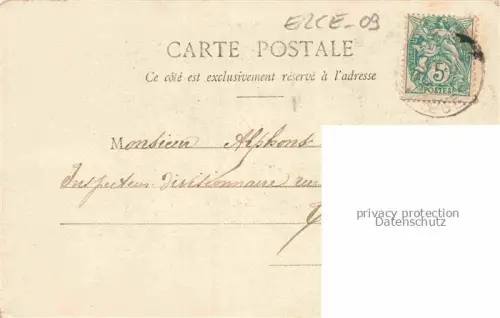 EZCE-09
CARTE POSTALE
Ce côté est exclusivement réservé à l'adresse
5c
POSTES
Monsieur Alphons
Inspecteur divisionnaire rue
privacy protection
Datenschutz